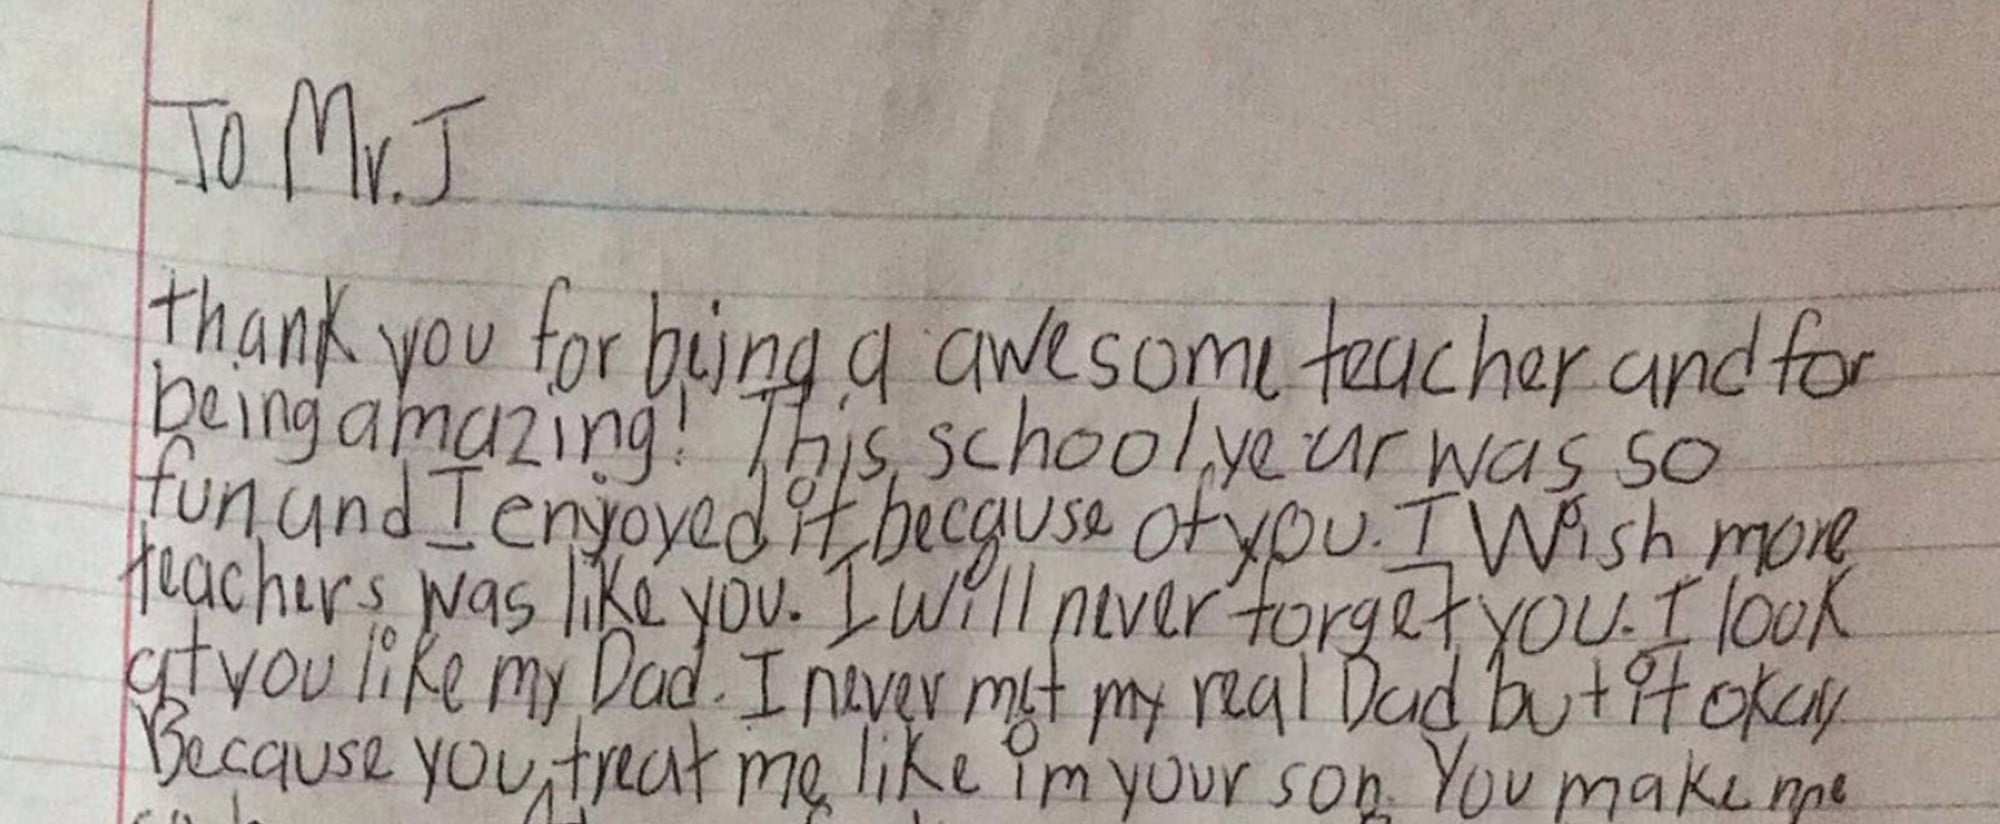 To Mr. J
thank you for being a awesome teacher and for
being amazing! This school year was so
fun and I enjoyed it because of you. I Wish more
teachers was like you. I will never forget you. I look
at you like my Dad. I never met my real Dad but it okay
Because you treat me like im your son. You make me